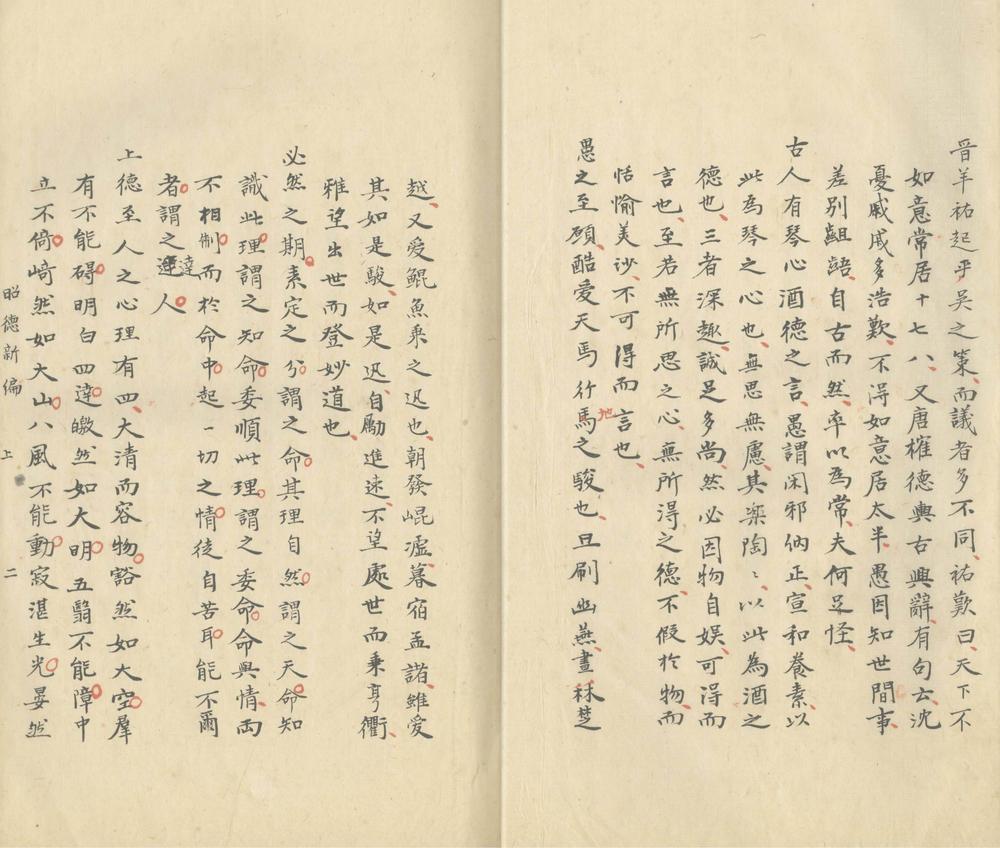 晋羊祐起乎吴之策而議者多不同祐歎曰天下不
如意常居十七八又唐權德輿古興辭有句云沈
憂戚戚多浩歎不得如意居太半愚因知世間事
差別齟齬自古而然率以為常夫何足怪
古人有琴心酒德之言愚謂閑邪納正宣和養素以
此為琴之心也無思無慮其楽陶〻以此為酒之
德也三者深趣誠足多尚然必因物自娯可得而
言也至若無所思之心無所得之德不假於物而
恬愉美妙不可得而言也
愚之至願酷愛天馬行馬之駿也旦刷幽燕晝秣楚
地
越又愛鯤魚乘之迅也朝發崐墟暮宿孟諸雖愛
其如是駿如是迅自勵進速不望處世而乘亨衢
雅望出世而登妙道也
必然之期素定之分謂之命其理自然謂之天命知
識此理謂之知命委順此理謂之委命命與情両
不相制而於命中起一切之情徒自苦耳能不爾
制
者謂之運人
達
上德至人之心理有四大清而容物豁然如大空羣
有不能碍明白四達皦然如大明五翳不能障中
立不倚崎然如大山八風不能動寂湛生光晏然
昭德新編 上 二